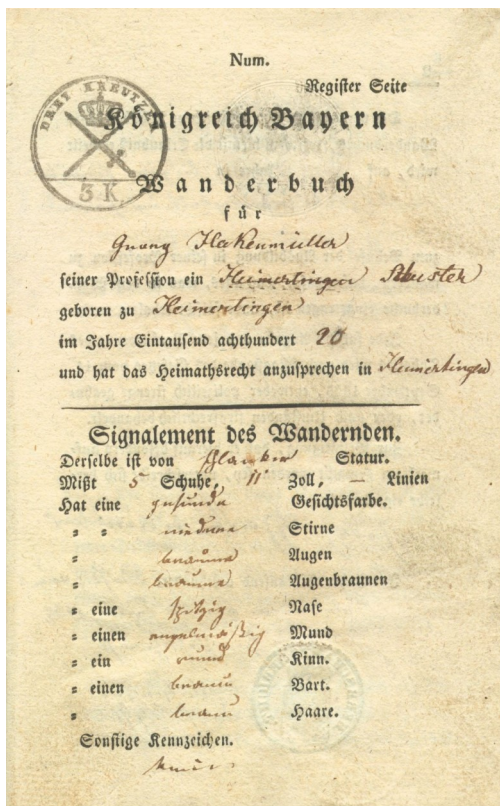 Num.
Register Seite
DREY KREUTZER
3 K.
Königreich Bayern
Wanderbuch
für
Hakenmüller
seiner Profession ein Heimertingen Schuster
geboren zu Heimertingen
im Jahre Eintausend achthundert 20
und hat das Heimathsrecht anzusprechen in Heimertingen
Signalement des Wandernden.
Derselbe ist von Schlanker Statur.
Mißt 5 Schuhe, 11 Zoll, — Linien
Hat eine gesunde Gesichtsfarbe.
" " niedere Stirne
" braune Augen
" braune Augenbraunen
" eine spitzig Nase
" einen regelmäßig Mund
" ein rund Kinn.
" einen braun Bart.
" braun Haare.
Sonstige Kennzeichen.
keine.